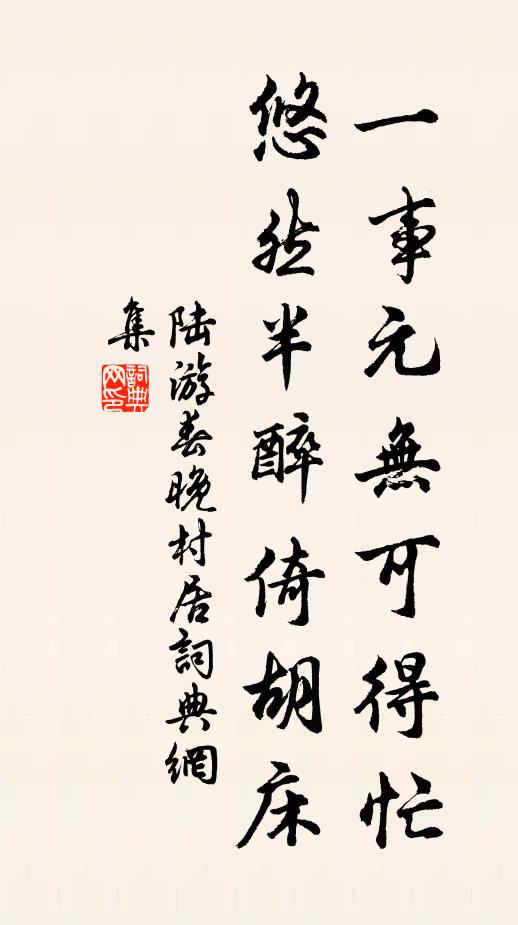 一事元無可得忙
悠然半醉倚胡床
陸游春晚村居詞典網
集
詞典
网印